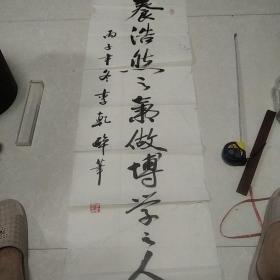 養浩然之氣做博学之人
丙子年冬李乾醉筆